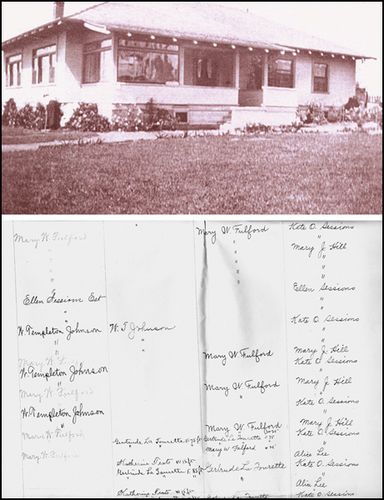 Mary W. Fulford Mary W Fulford Kate O. Sessions
" " Mary J Hill
" " "
" " "
Ellen Sessions Est " Ellen Sessions
" "
W. Templeton Johnson W. T Johnson " Kate O. Sessions
" " " "
Mary W. Fulford Mary W Fulford Mary J. Hill
W. Templeton Johnson Kate O. Sessions
" " "
Mary W. Fulford Mary W Fulford Mary J Hill
" " "
W. Templeton Johnson Kate O. Sessions
" " "
Mary W. Fulford Mary W. Fulford Mary J Hill
Gertrude La Tourrette Gertrude La Tourrette Kate O. Sessions
Mary W Fulford "
Mary W. Fulford Katherine Alice Lee
Gertrude La Tourrette Gertrude La Tourrette Kate O. Sessions
" "
Alice Lee
Katherine Kate O. Sessions